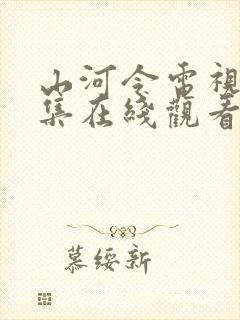 山河令電視
集在綫觀看
慕綏新